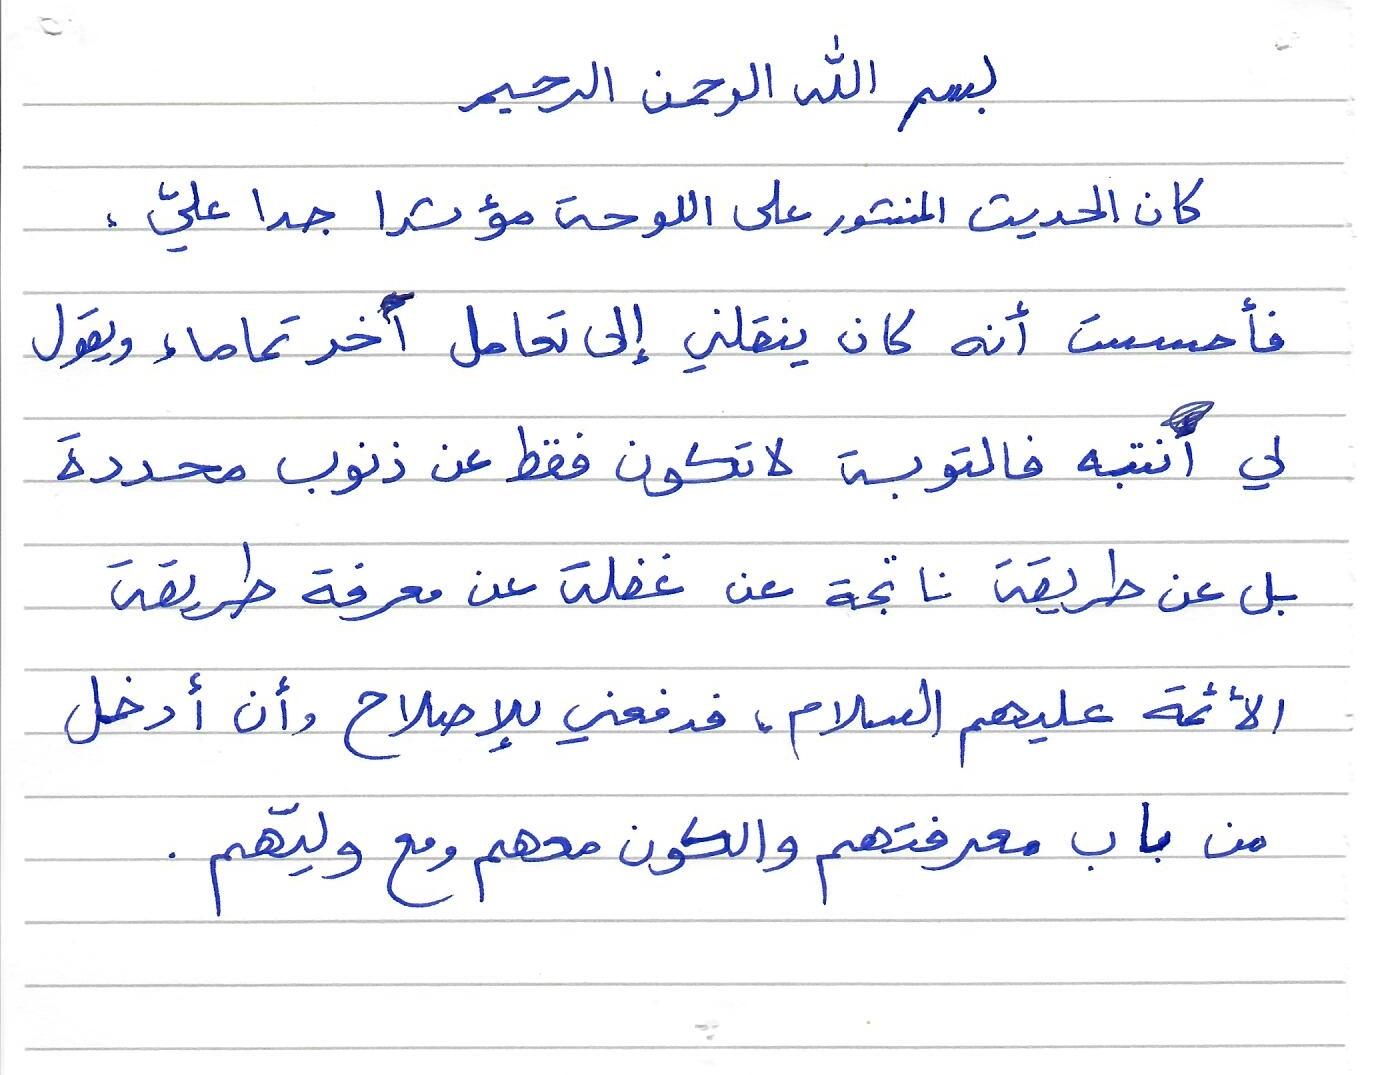 بسم الله الرحمن الرحيم
كان الحديث المنشور على اللوحة مؤثرا جدا عليّ ،
فأحسست أنه كان ينقلني إلى تعامل أخر تماما، ويقول
لي أنتبه فالتوبة لا تكون فقط عن ذنوب محددة
بل عن طريقة ناتجة عن غفلة عن معرفة طريقة
الأئمة عليهم السلام، فدفعني للإصلاح وأن أدخل
من باب معرفتهم والكون معهم ومع وليّهم .